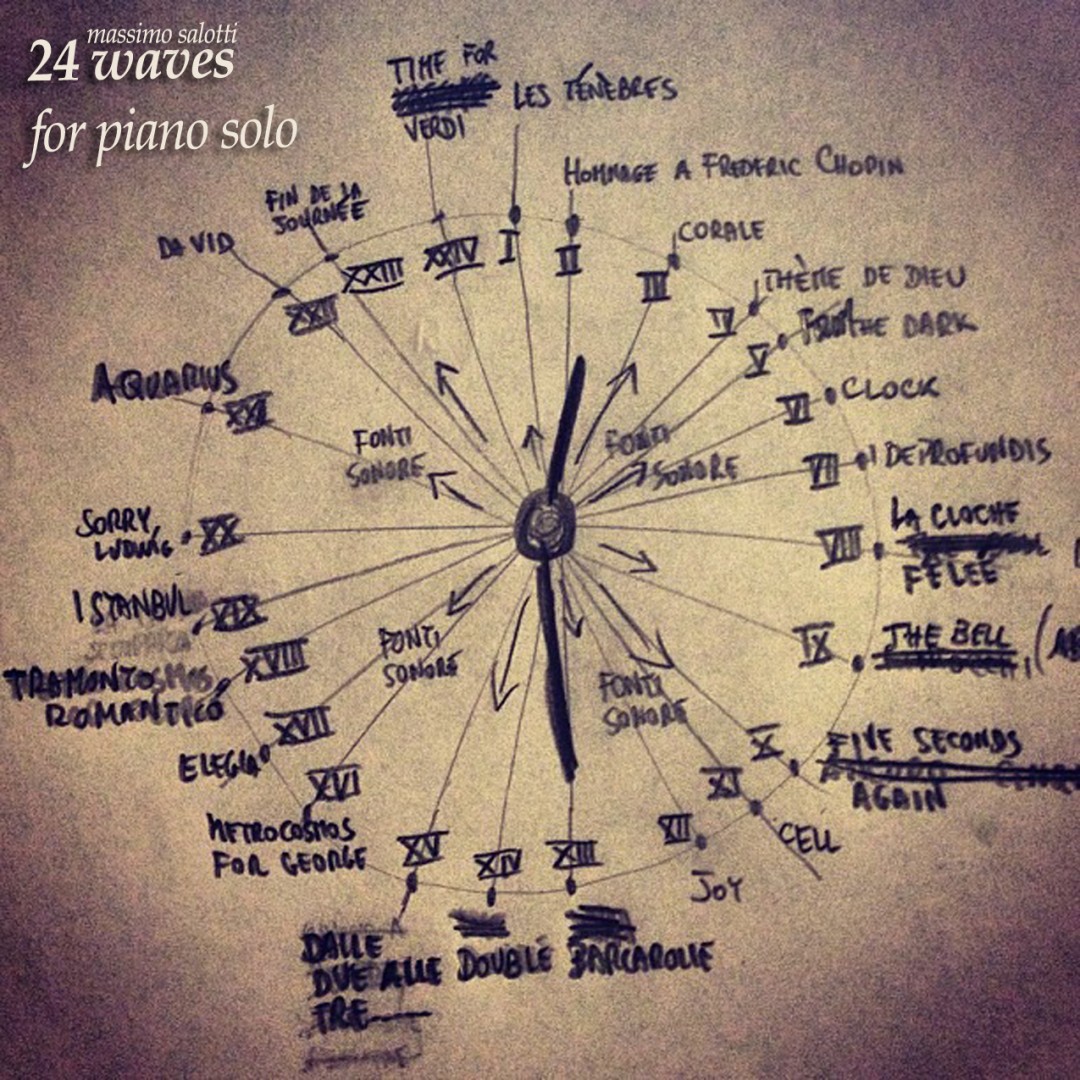 massimo salotti
24 waves
for piano solo
TIME FOR
VERDI
LES TÉNÈBRES
HOMMAGE A FREDERIC CHOPIN
CORALE
THÈME DE DIEU
THE DARK
CLOCK
DEPROFUNDIS
LA CLOCHE
FÉLÉE
THE BELL
FIVE SECONDS
AGAIN
CELL
JOY
BARCAROLLE
DOUBLE
DALLE
DUE ALLE
TRE
METROCOSMOS
FOR GEORGE
ELEGIA
TRAMONTO
ROMANTICO
ISTANBUL
SORRY,
LUDWIG
AQUARIUS
DAVID
FIN DE LA
JOURNÉE
I
II
III
IV
V
VI
VII
VIII
IX
X
XI
XII
XIII
XIV
XV
XVI
XVII
XVIII
XIX
XX
XXI
XXII
XXIII
XXIV
FONTI
SONORE
FONTI
SONORE
FONTI
SONORE
FONTI
SONORE